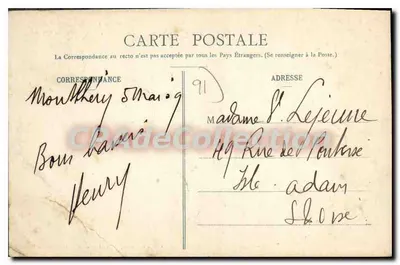 CARTE POSTALE
La Correspondance au recto n'est pas acceptée par tous les Pays Étrangers. (Se renseigner à la Poste.)
CORRESPONDANCE
ADRESSE
91
Montlhéry 5 Mai 09
Bons baisers
Henry
Madame Vve Lejeune
49 Rue de Pontoise
Isle adam
S & Oise